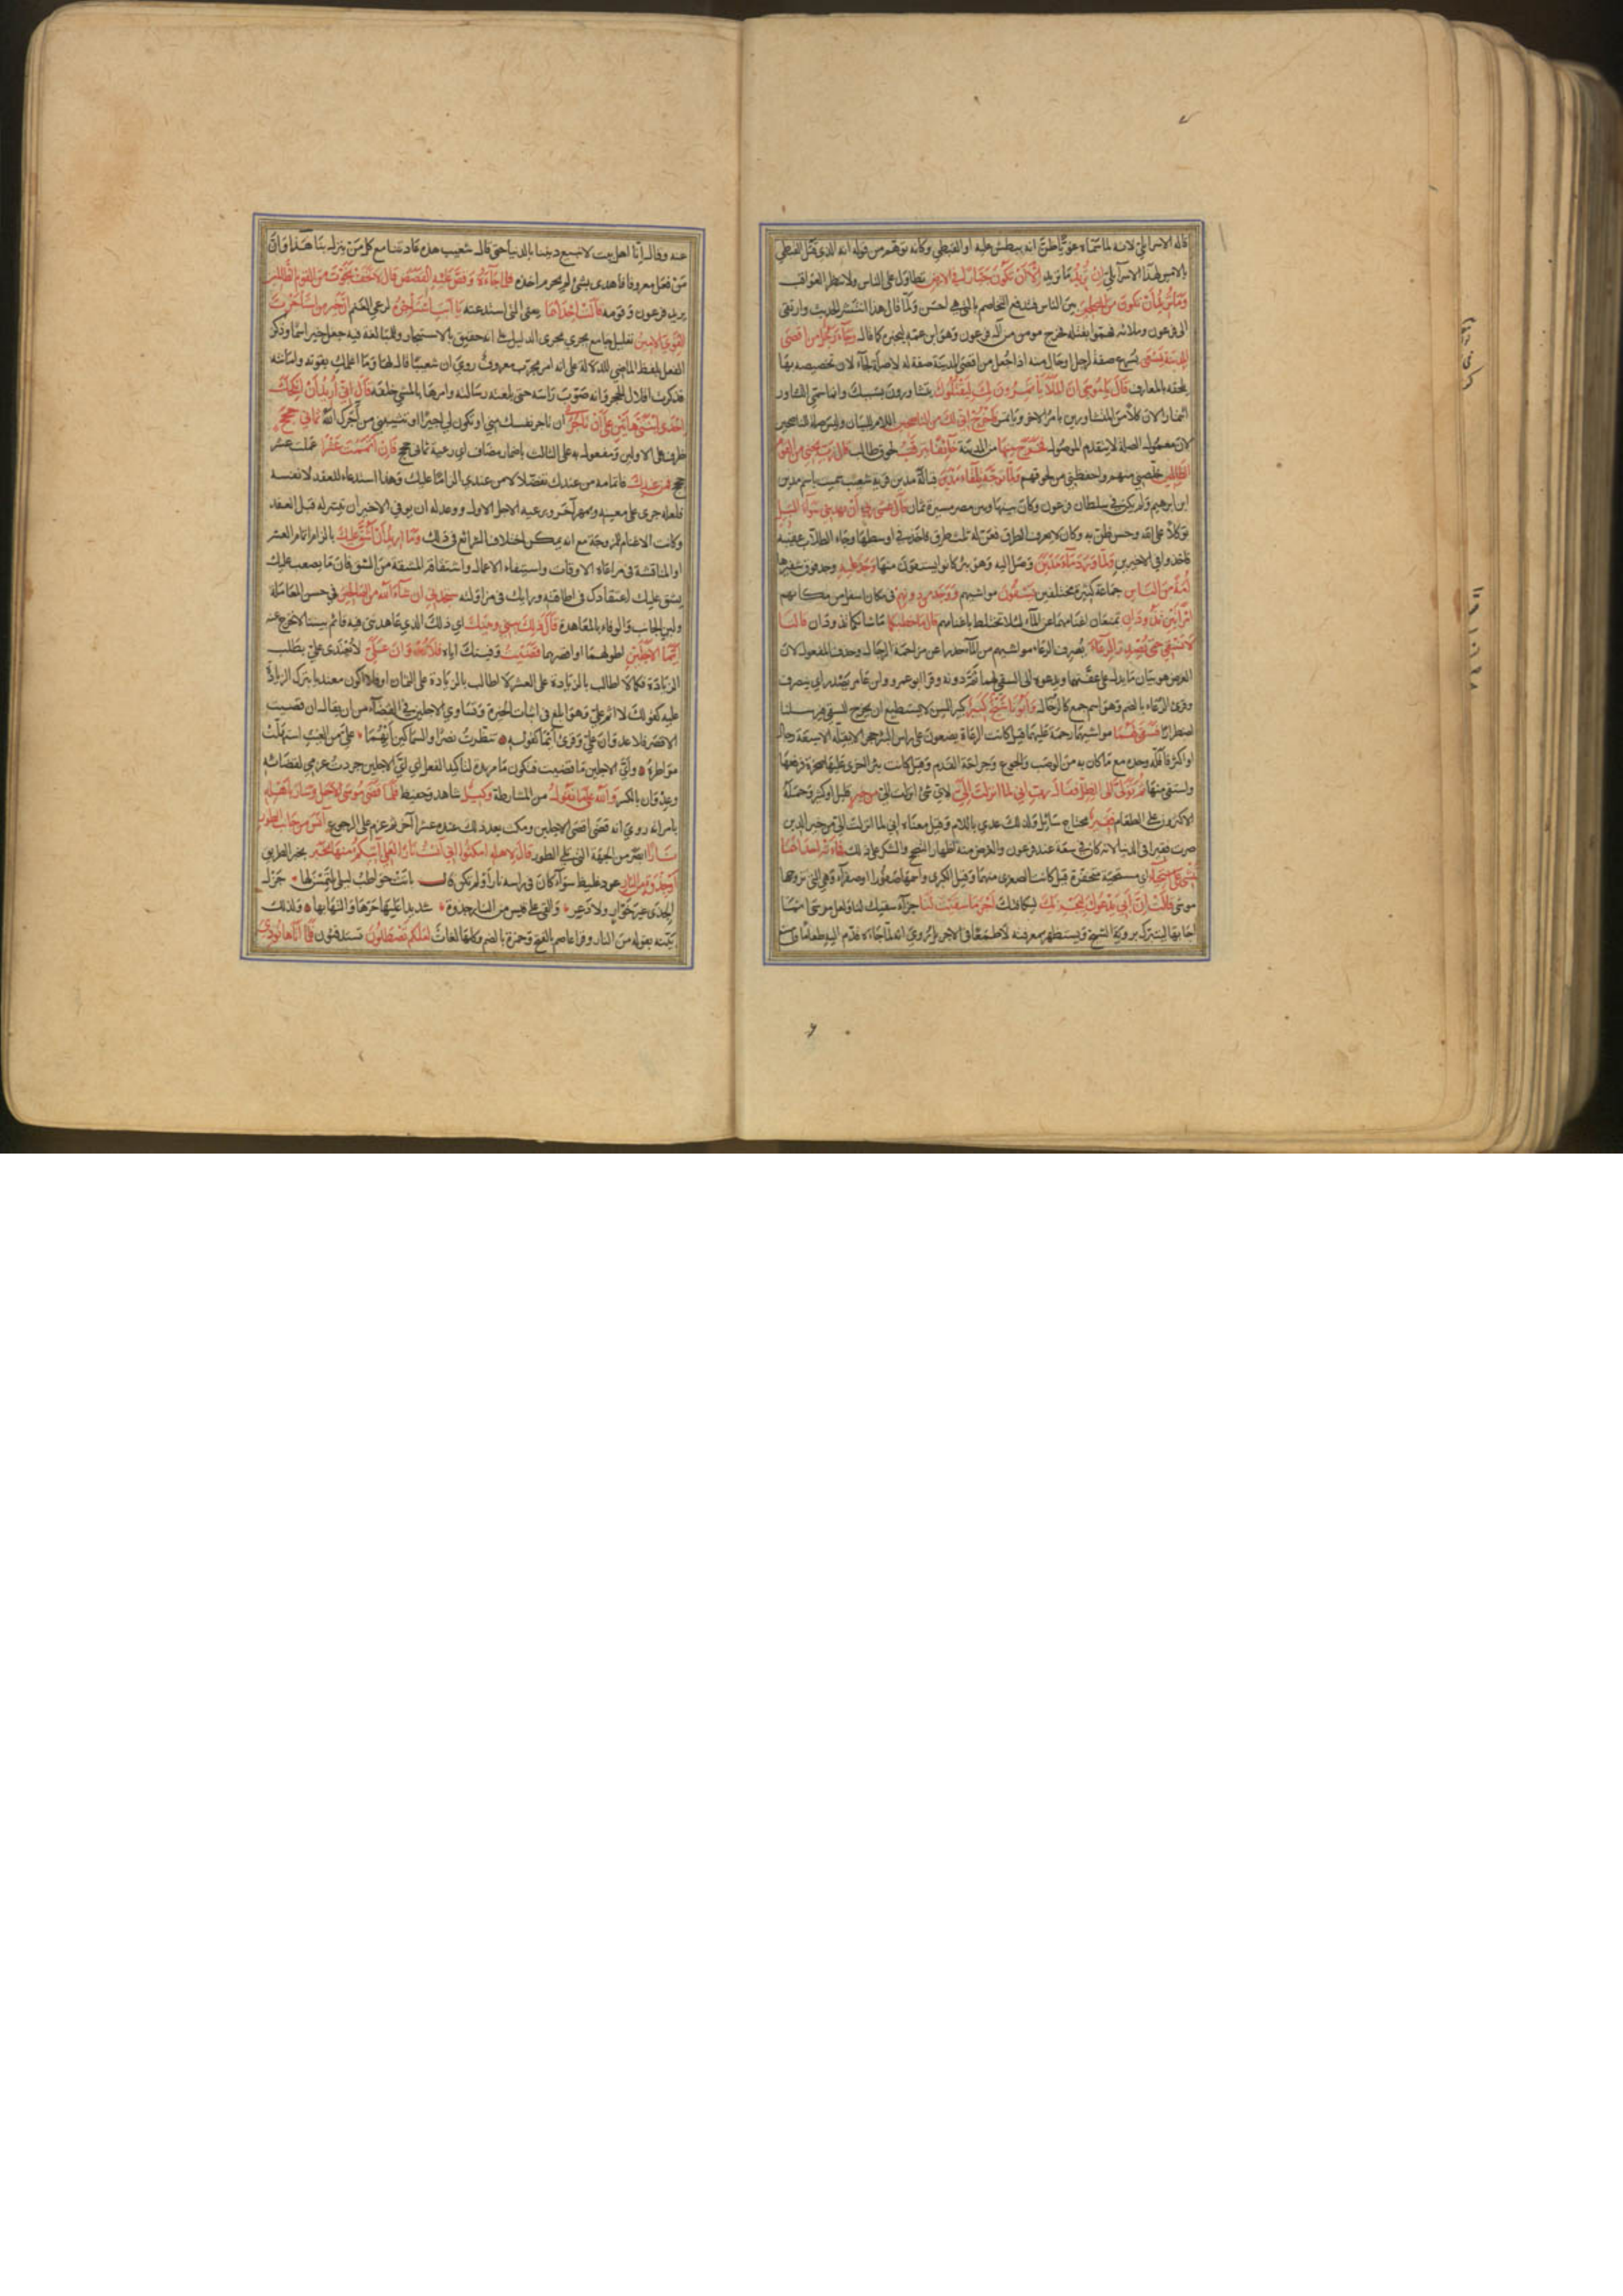 قاله الاسرائيلي لانه لما سماه غويا ظن انه يبطش عليه او القبطي وكانه توهم من قوله انه الذي قتل القبطي
بالامس لهذا الاسرائيلي ان تريد ما تريد الا ان تكون جبارا في الارض تطاول على الناس ولا تنظر العواقب
وما تريد ان تكون من المصلحين بين الناس فتدفع التخاصم بالتي هي احسن ولما قال هذا انتشر الحديث وارتقى
الى فرعون وملائه فهموا بقتله فخرج مومن من آل فرعون وهو ابن عمه ليخبره كما قال وجاء رجل من اقصى
المدينة يسعى يسرع صفة لرجل او حال منه اذا جعل من اقصى المدينة صفة له لا صلة لجاء لان تخصيصه بها
يلحقه بالمعارف قال يا موسى ان الملأ يأتمرون بك ليقتلوك يتشاورون بسببك وانما سمي التشاور
ائتمارا لان كلا من المتشاورين يامر الاخر ويأتمر فاخرج اني لك من الناصحين اللام للبيان وليس صلة للناصحين
لان معمول الصلة لا يتقدم الموصول فخرج منها من المدينة خائفا يترقب لحوق طالب قال رب نجني من القوم
الظالمين خلصني منهم واحفظني من لحوقهم ولما توجه تلقاء مدين قبالة مدين قرية شعيب سميت باسم مدين
ابن ابرهيم ولم يكن في سلطان فرعون وكان بينها وبين مصر مسيرة ثمان قال عسى ربي ان يهديني سواء السبيل
توكلا على الله وحسن ظن به وكان لا يعرف الطرق فعن له ثلث طرق فاخذ في اوسطها وجاء الطلاب عقيبه
فاخذوا في الاخيرين ولما ورد ماء مدين وصل اليه وهو بئر كانوا يسقون منها وجد عليه وجد فوق شفيرها
امة من الناس جماعة كثيرة مختلفين يسقون مواشيهم ووجد من دونهم في مكان اسفل من مكانهم
امرأتين تذودان تمنعان اغنامهما عن الماء لئلا تختلط باغنامهم قال ما خطبكما ما شانكما تذودان قالتا
لا نسقي حتى يصدر الرعاء يصرف الرعاء مواشيهم من الماء حذرا عن مزاحمة الرجال وحذف المفعول لان
الغرض هو بيان ما يدل على عفتهما ويدعوه الى السقي لهما ثم دونه وقرا ابو عمرو وابن عامر يصدر اي ينصرف
وقرئ الرعاء بالضم وهو اسم جمع كالرخال وابونا شيخ كبير كبير السن لا يستطيع ان يخرج للسقي فيرسلنا
اضطرارا فسقى لهما مواشيهما رحمة عليهما قيل كانت الرعاة يضعون على راس البئر حجرا لا يقله الا سبعة رجال
او اكثر فاقله وحده مع ما كان به من الوصب والجوع وجراحة القدم وقيل كانت بئر اخرى عليها صخرة فرفعها
واستقى منها ثم تولى الى الظل فقال رب اني لما انزلت الي لاي شئ انزلت الي من خير قليل او كثير وحمله
الاكثرون على الطعام فقير محتاج سائل ولذلك عدي باللام وقيل معناه اني لما انزلت الي من خير الدين
صرت فقيرا في الدنيا لانه كان في سعة عند فرعون والغرض منه اظهار التبجح والشكر على ذلك فجاءته احداهما
تمشي على استحياء اي مستحيية متخفرة قيل كانت الصغرى منهما وقيل الكبرى واسمها صفورا او صفراء وهي التي تزوجها
موسى قالت ان ابي يدعوك ليجزيك ليكافئك اجر ما سقيت لنا جزاء سقيك لنا ولعل موسى انما
اجابها ليتبرك برؤية الشيخ ويستظهر بمعرفته لا طمعا في الاجر بل روي انه لما جاءه قدم اليه طعاما فامتنع
عنه وقال انا اهل بيت لا نبيع ديننا بالدنيا حتى قال شعيب هذه عادتنا مع كل من ينزل بنا هذا وان
من فعل معروفا فاهدى بشئ لم يحرم اخذه فلما جاءه وقص عليه القصص قال لا تخف نجوت من القوم الظالمين
يريد فرعون وقومه قالت احداهما يعني التي استدعته يا ابت استأجره لرعي الغنم ان خير من استأجرت
القوي الامين تعليل جامع يجري مجرى الدليل على انه حقيق بالاستيجار وللمبالغة فيه جعل خير اسما وذكر
الفعل بلفظ الماضي للدلالة على انه امر مجرب معروف روي ان شعيبا قال لها وما اعلمك بقوته وامانته
فذكرت اقلال الحجر وانه صوب راسه حتى بلغته رسالته وامرها بالمشي خلفه قال اني اريد ان انكحك
احدى ابنتي هاتين على ان تأجرني ان تاجر نفسك مني او تكون لي اجيرا او تثيبني من آجرك الله ثماني حجج
ظرف على الاولين ومفعول به على الثالث باضمار مضاف اي رعية ثماني حجج فان اتممت عشرا عملت عشر
حجج فمن عندك فاتمامه من عندك تفضلا لا من عندي الزاما عليك وهذا استدعاء للعقد لا نفسه
فلعله جرى على معينة وبمهر آخر وبرعيه الاجل الاول ووعد له ان يوفي الاخير ان تيسر له قبل العقد
وكانت الاغنام للمزوجة مع انه يمكن اختلاف الشرائع في ذلك وما اريد ان اشق عليك بالزام اتمام العشر
او المناقشة في مراعاة الاوقات واستيفاء الاعمال واشتقاق المشقة من الشق فان ما يصعب عليك
يشق عليك اعتقادك في اطاقته ورايك في مزاولته ستجدني ان شاء الله من الصالحين في حسن المعاملة
ولين الجانب والوفاء بالمعاهدة قال ذلك بيني وبينك اي ذلك الذي عاهدتني فيه قائم بيننا لا نخرج عنه
ايما الاجلين اطولهما او اقصرهما قضيت وفيتك اياه فلا عدوان علي لا تعتدى علي بطلب
الزيادة فكما لا اطالب بالزيادة على العشر لا اطالب بالزيادة على الثمان او فلا اكون معتديا بترك الزيادة
عليه كقولك لا اثم علي وهو ابلغ في اثبات الخيرة وتساوي الاجلين في القضاء من ان يقال ان قضيت
الاقصر فلا عدوان علي وقرئ ايما كقوله تنظرت نصرا والسماكين ايهما علي من الغيث استهلت
مواطره واي الاجلين ما قضيت فتكون ما مزيدة لتاكيد الفعل اي اي الاجلين جردت عزمي لقضائه
وعدوان بالكسر والله على ما نقول من المشارطة وكيل شاهد وحفيظ فلما قضى موسى الاجل وسار باهله
بامراته روي انه قضى اقصى الاجلين ومكث بعد ذلك عنده عشرا آخر ثم عزم على الرجوع آنس من جانب الطور
نارا ابصر من الجهة التي تلي الطور قال لاهله امكثوا اني آنست نارا لعلي آتيكم منها بخبر بخبر الطريق
او جذوة من النار عود غليظ سواء كان في راسه نار او لم يكن قال باتت حواطب ليلى يلتمسن لها جزل
الجذى غير خوار ولا دعر والقى على قيس من النار جذوة شديدا عليها حرها والتهابها ولذلك
بينه بقوله من النار وقرا عاصم بالفتح وحمزة بالضم وكلها لغات لعلكم تصطلون تستدفئون فلما اتاها نودي